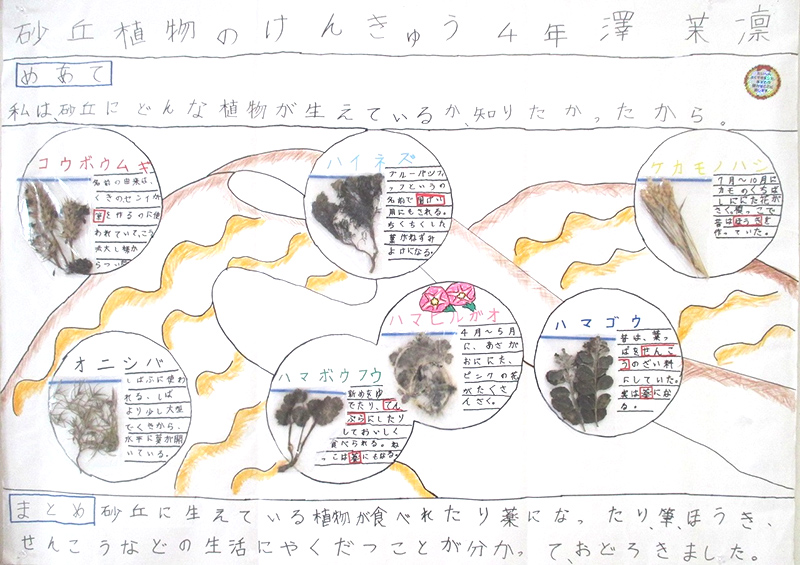 砂丘植物のけんきゅう 4年 澤 茉凛
めあて
私は砂丘にどんな植物が生えているか、知りたかったから。
コウボウムギ
名前の由来は、
くきのセンイが
筆を作るのに使
われていて、こう
ハイネズ
名前で
用にもされる。
ちくちくした
葉がねずみ
よけになる。
ケカモノハシ
7月〜10月に
カモのくちば
しににた花が
昔はほうきを
作っていた。
オニシバ
しばふに使わ
れる、しば
より少し大型
でくきから、
水平に葉が開
いている。
ハマボウフウ
新めをゆ
でたり、てん
ぷらにしたり
しておいしく
食べられる。ね
っこは薬にもなる。
ハマヒルガオ
4月〜5月
に、あさが
おににた、
ピンクの花
がたくさ
んさく。
ハマゴウ
昔は、葉っ
ぱをせんこ
うのざい料
にしていた。
実は薬にな
る。
まとめ 砂丘に生えている植物が食べれたり薬になったり、筆、ほうき、
せんこうなどの生活にやくだつことが分かって、おどろきました。